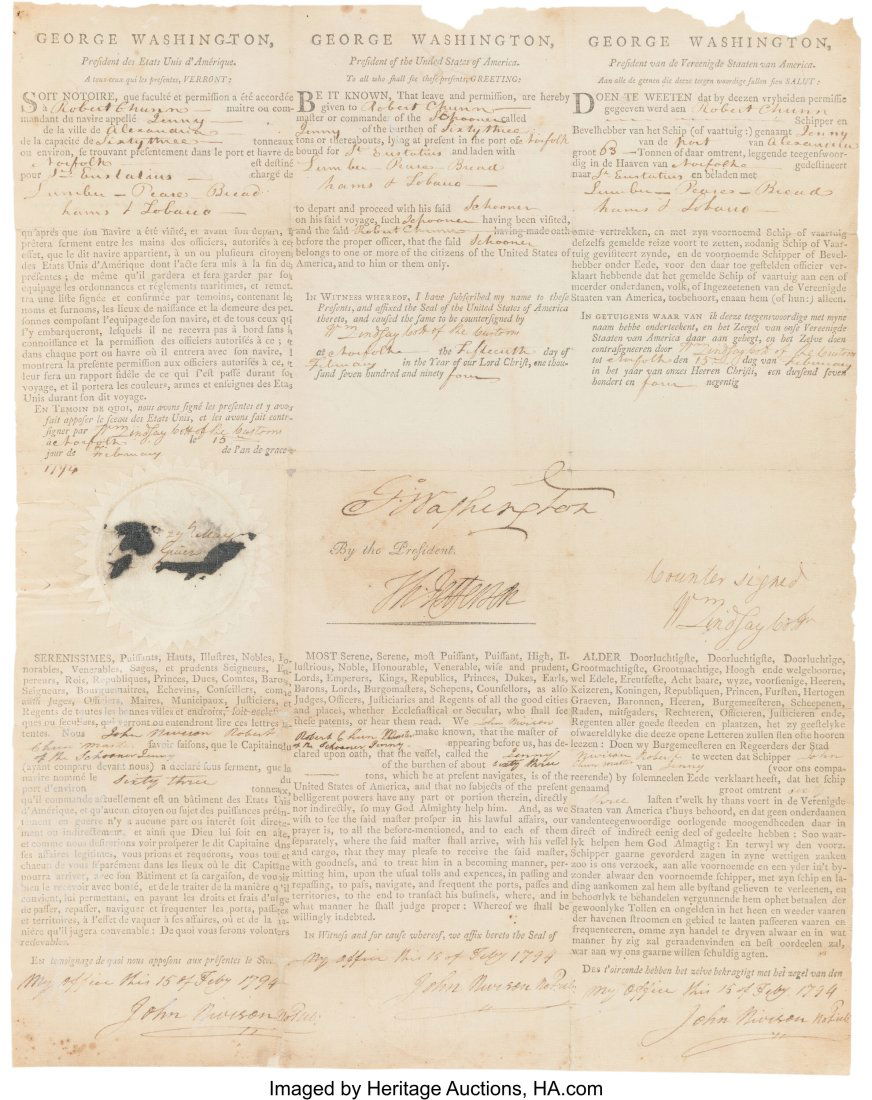 GEORGE WASHINGTON,
Président des Etats Unis d'Amérique.
A tous ceux qui les présentes, VERRONT:
SOIT NOTOIRE, que faculté et permission a été accordée
à Robert Chunn maitre ou com-
mandant du navire appellé Jenny
de la ville de Alexandria
de la capacité de Sixty three tonneaux
ou environ, se trouvant présentement dans le port et havre de
Norfolk est destiné
pour St. Eustatius chargé de
Lumber - Pease - Bread
hams & Tobacco
qu'après que son navire a été visité, et avant son départ, il
prêtera serment entre les mains des officiers, autorisés à cet
effet, que le dit navire appartient, à un ou plusieurs citoyens
des Etats Unis d'Amérique dont l'acte sera mis à la fin des
présentes; de même qu'il gardera et fera garder par son
équipage les ordonnances et réglements maritimes, et remet-
tra une liste signée et confirmée par temoins, contenant les
noms et surnoms, les lieux de naissance et la demeure des per-
sonnes composant l'équipage de son navire, et de tous ceux qui
s'y embarqueront, lesquels il ne recevra pas à bord sans la
connoissance et la permission des officiers autorisés à ce; et
dans chaque port ou havre où il entrera avec son navire, il
montrera la présente permission aux officiers autorisés à ce,
leur fera un rapport fidèle de ce qui s'est passé durant son
voyage, et il portera les couleurs, armes et enseignes des Etats
Unis durant son dit voyage.
EN TEMOIN DE QUOI, nous avons signé les presentes et y avons
fait apposer le sceau des Etats Unis, et les avons fait contr-
signer par Wm Lindsay Collr of the Customs
à Norfolk le 15
jour de February de l'an de grace
1794
GEORGE WASHINGTON,
President of the United States of America.
To all who shall see these presents, GREETING:
BE IT KNOWN, That leave and permission, are hereby
given to Robert Chunn
master or commander of the Schooner called
Jenny of the burthen of Sixty three
tons or thereabouts, lying at present in the port of Norfolk
bound for St Eustatius and laden with
Lumber - Pease - Bread
hams & Tobacco
to depart and proceed with his said Schooner
on his said voyage, such Schooner having been visited,
and the said Robert Chunn having made oath
before the proper officer, that the said Schooner
belongs to one or more of the citizens of the United States of
America, and to him or them only.
IN WITNESS WHEREOF, I have subscribed my name to these
Presents, and affixed the Seal of the United States of America
thereto, and caused the same to be countersigned by
Wm Lindsay Collr of the Customs
at Norfolk the Fifteenth day of
February in the Year of our Lord Christ, one thou-
sand seven hundred and ninety four
GEORGE WASHINGTON,
President van de Vereenigde Staaten van America.
Aan alle de genen die deeze teegenwoordige sullen sien SALUT:
DOEN TE WEETEN dat by deezen vryheiden permissie
gegeeven werd aen Robert Chunn
Schipper en
Bevelhebber van het Schip (of vaartuig:) genaamt Jenny
van de Port van Alexandria
groot 63 Tonnen of daar omtrent, leggende teegenswoor-
dig in de Haaven van Norfolk gedestineert
naar St Eustatius en beladen met
Lumber - Pease - Bread
hams & Tobacco
omte vertrekken, en met zyn voornoemd Schip of vaartuig
deszelfs gemelde reize voort te zetten, zodanig Schip of Vaar-
tuig gevisiteert zynde, en de voornoemde Schipper of Bevel-
hebber onder Eede, voor den daar toe gestelden officier ver-
klaart hebbende dat het gemelde Schip of vaartuig aan een of
meerder onderdanen, volk, of Ingezeetenen van de Vereenigde
Staaten van America, toebehoort, enaan hem (of hun:) alleen.
IN GETUIGENIS WAAR VAN ik deeze teegenwoordige met myne
naam hebbe onderteekent, en het Zeegel van onse Vereenigde
Staaten van America daar aan gehegt, en het Zelve doen
contrasigneeren door Wm Lindsay Collr of the Customs
tot Norfolk den 15 dag van February
in het yaar van onses Heeren Christi, een duysend seven
hondert en four negentig
Go: Washington
By the President.
Th: Jefferson
Counter signed
Wm Lindsay Collr
SERENISSIMES, Puissants, Hauts, Illustres, Nobles, Ho-
norables, Venerables, Sages, et prudents Seigneurs, Em-
pereurs, Rois, Republiques, Princes, Ducs, Comtes, Barons,
Seigneurs, Bourguemaitres, Echevins, Conseillers, comme
aussi Juges, Officiers, Maires, Municipaux, Justiciers, et
Regents de toutes les bonnes villes et endroits, soit ecclesiasti-
ques ou séculiers, qui verront ou entendront lire ces lettres pa-
tentes. Nous John Nivison Robert
Chunn master savoir faisons, que le Capitaine
of the Schooner Jenny
(ayant comparu devant nous) a déclaré sous serment, que la
navire nommé le
sixty three du
port d'environ tonneaux,
qu'il commande actuellement est un bâtiment des Etats Unis
d'Amérique, et qu'aucun citoyen ou sujet des puissances présen-
tement en guerre n'y a aucune part ou intérêt soit directe-
ment ou indirectement, et ainsi que Dieu lui soit en aide,
et comme nous desirons voir prosperer le dit Capitaine dans
ses affaires legitimes, vous prions et requérons, vous tous et
chacun de vous séparément dans les lieux où le dit Capitaine
pourra arriver, avec son Bâtiment et sa cargaison, de vouloir
bien le recevoir avec bonté, et de le traiter de la manière qu'il
convient, lui permettant, en payant les droits et frais d'usage
de passer, repasser, naviguer et frequenter les ports, passes
et territoires, à l'effet de vaquer à ses affaires, où et de la ma-
nière qu'il jugera convenable: De quoi vous serons volontiers
redevables.
En temoignage de quoi nous apposons aux présentes le Sceau
My office this 15 of Feby 1794
John Nivison NoPub:
MOST Serene, Serene, most Puissant, Puissant, High, Il-
lustrious, Noble, Honourable, Venerable, wise and prudent,
Lords, Emperors, Kings, Republics, Princes, Dukes, Earls,
Barons, Lords, Burgomasters, Schepens, Counsellors, as also
Judges, Officers, Justiciaries and Regents of all the good cities
and places, whether Ecclesiastical or Secular, who shall see
these patents, or hear them read. We John Nivison
Robert Chunn Master make known, that the master of
of the Schooner Jenny appearing before us, has de-
clared upon oath, that the vessel, called the Jenny
of the burthen of about sixty three
tons, which he at present navigates, is of the
United States of America, and that no subjects of the present
belligerent powers have any part or portion therein, directly
nor indirectly, so may God Almighty help him. And, as we
wish to see the said master prosper in his lawful affairs, our
prayer is, to all the before-mentioned, and to each of them
separately, where the said master shall arrive, with his vessel
and cargo, that they may please to receive the said master,
with goodness, and to treat him in a becoming manner, per-
mitting him, upon the usual tolls and expences, in passing and
repassing, to pass, navigate, and frequent the ports, passes and
territories, to the end to transact his business, where, and in
what manner he shall judge proper: Whereof we shall be
willingly indebted.
In Witness and for cause whereof, we affix hereto the Seal of
My office this 15 of Feby 1794
John Nivison NoPub:
ALDER Doorluchtigste, Doorluchtige, Doorluchtige,
Grootmachtigste, Grootmachtige, Hoogh ende welgeboorne,
wel Edele, Erentfeste, Acht baare, wyze, voorsienige, Heeren,
Keizeren, Koningen, Republiquen, Princen, Fursten, Hertogen
Graeven, Baronnen, Heeren, Burgemeesteren, Scheepenen,
Raden, mitsgaders, Rechteren, Officieren, Justicieren ende,
Regenten aller goede steeden en plaatzen, het zy geestelyke
ofwaereldlyke die deeze opene Letteren zullen sien ofte hooren
leezen: Doen wy Burgemeesteren en Regeerders der Stad
Nivison Robert te weeten dat Schipper John
Chunn master van Jenny (voor ons compa-
reerende) by solemneelen Eede verklaart heeft, dat het schip
genaamd groot omtrent sixty
three lasten t'welk hy thans voert in de Verenigde
Staaten van America t'huys behoord, en dat geen onderdaanen
vandenteegenwoordige oorlogende moogendheeden daar in
direct of indirect eenig deel of gedeelte hebben: Soo waar-
lyk helpen hem God Almagtig: En terwyl wy den voorz.
Schipper gaarne gevorderd zagen in zyne wettigen zaaken
zoo is ons verzoek, aan alle voornoemde en een yder in't by-
zonder alwaar den voornoemde schipper, met zyn schip en la-
ding aankomen zal hem alle bystand gelieven te verleenen, en
behoorlyk te behandelen vergunnende hem ophet betaalen der
gewoonlyke Tollen en ongelden in het heen en weeder vaaren
der havenen stroomen en gebied te laaten passeeren vaaren en
frequenteeren, omme zyn handel te dryven alwaar en in wat
manner by zig zal geraadenvinden en best oordeelen zal,
war aan wy ons gaarne willen schuldig agten.
Des t'oirconde hebben het zelve bekragtigt met het zegel van den
My office this 15 of Feby 1794
John Nivison NoPub
Imaged by Heritage Auctions, HA.com